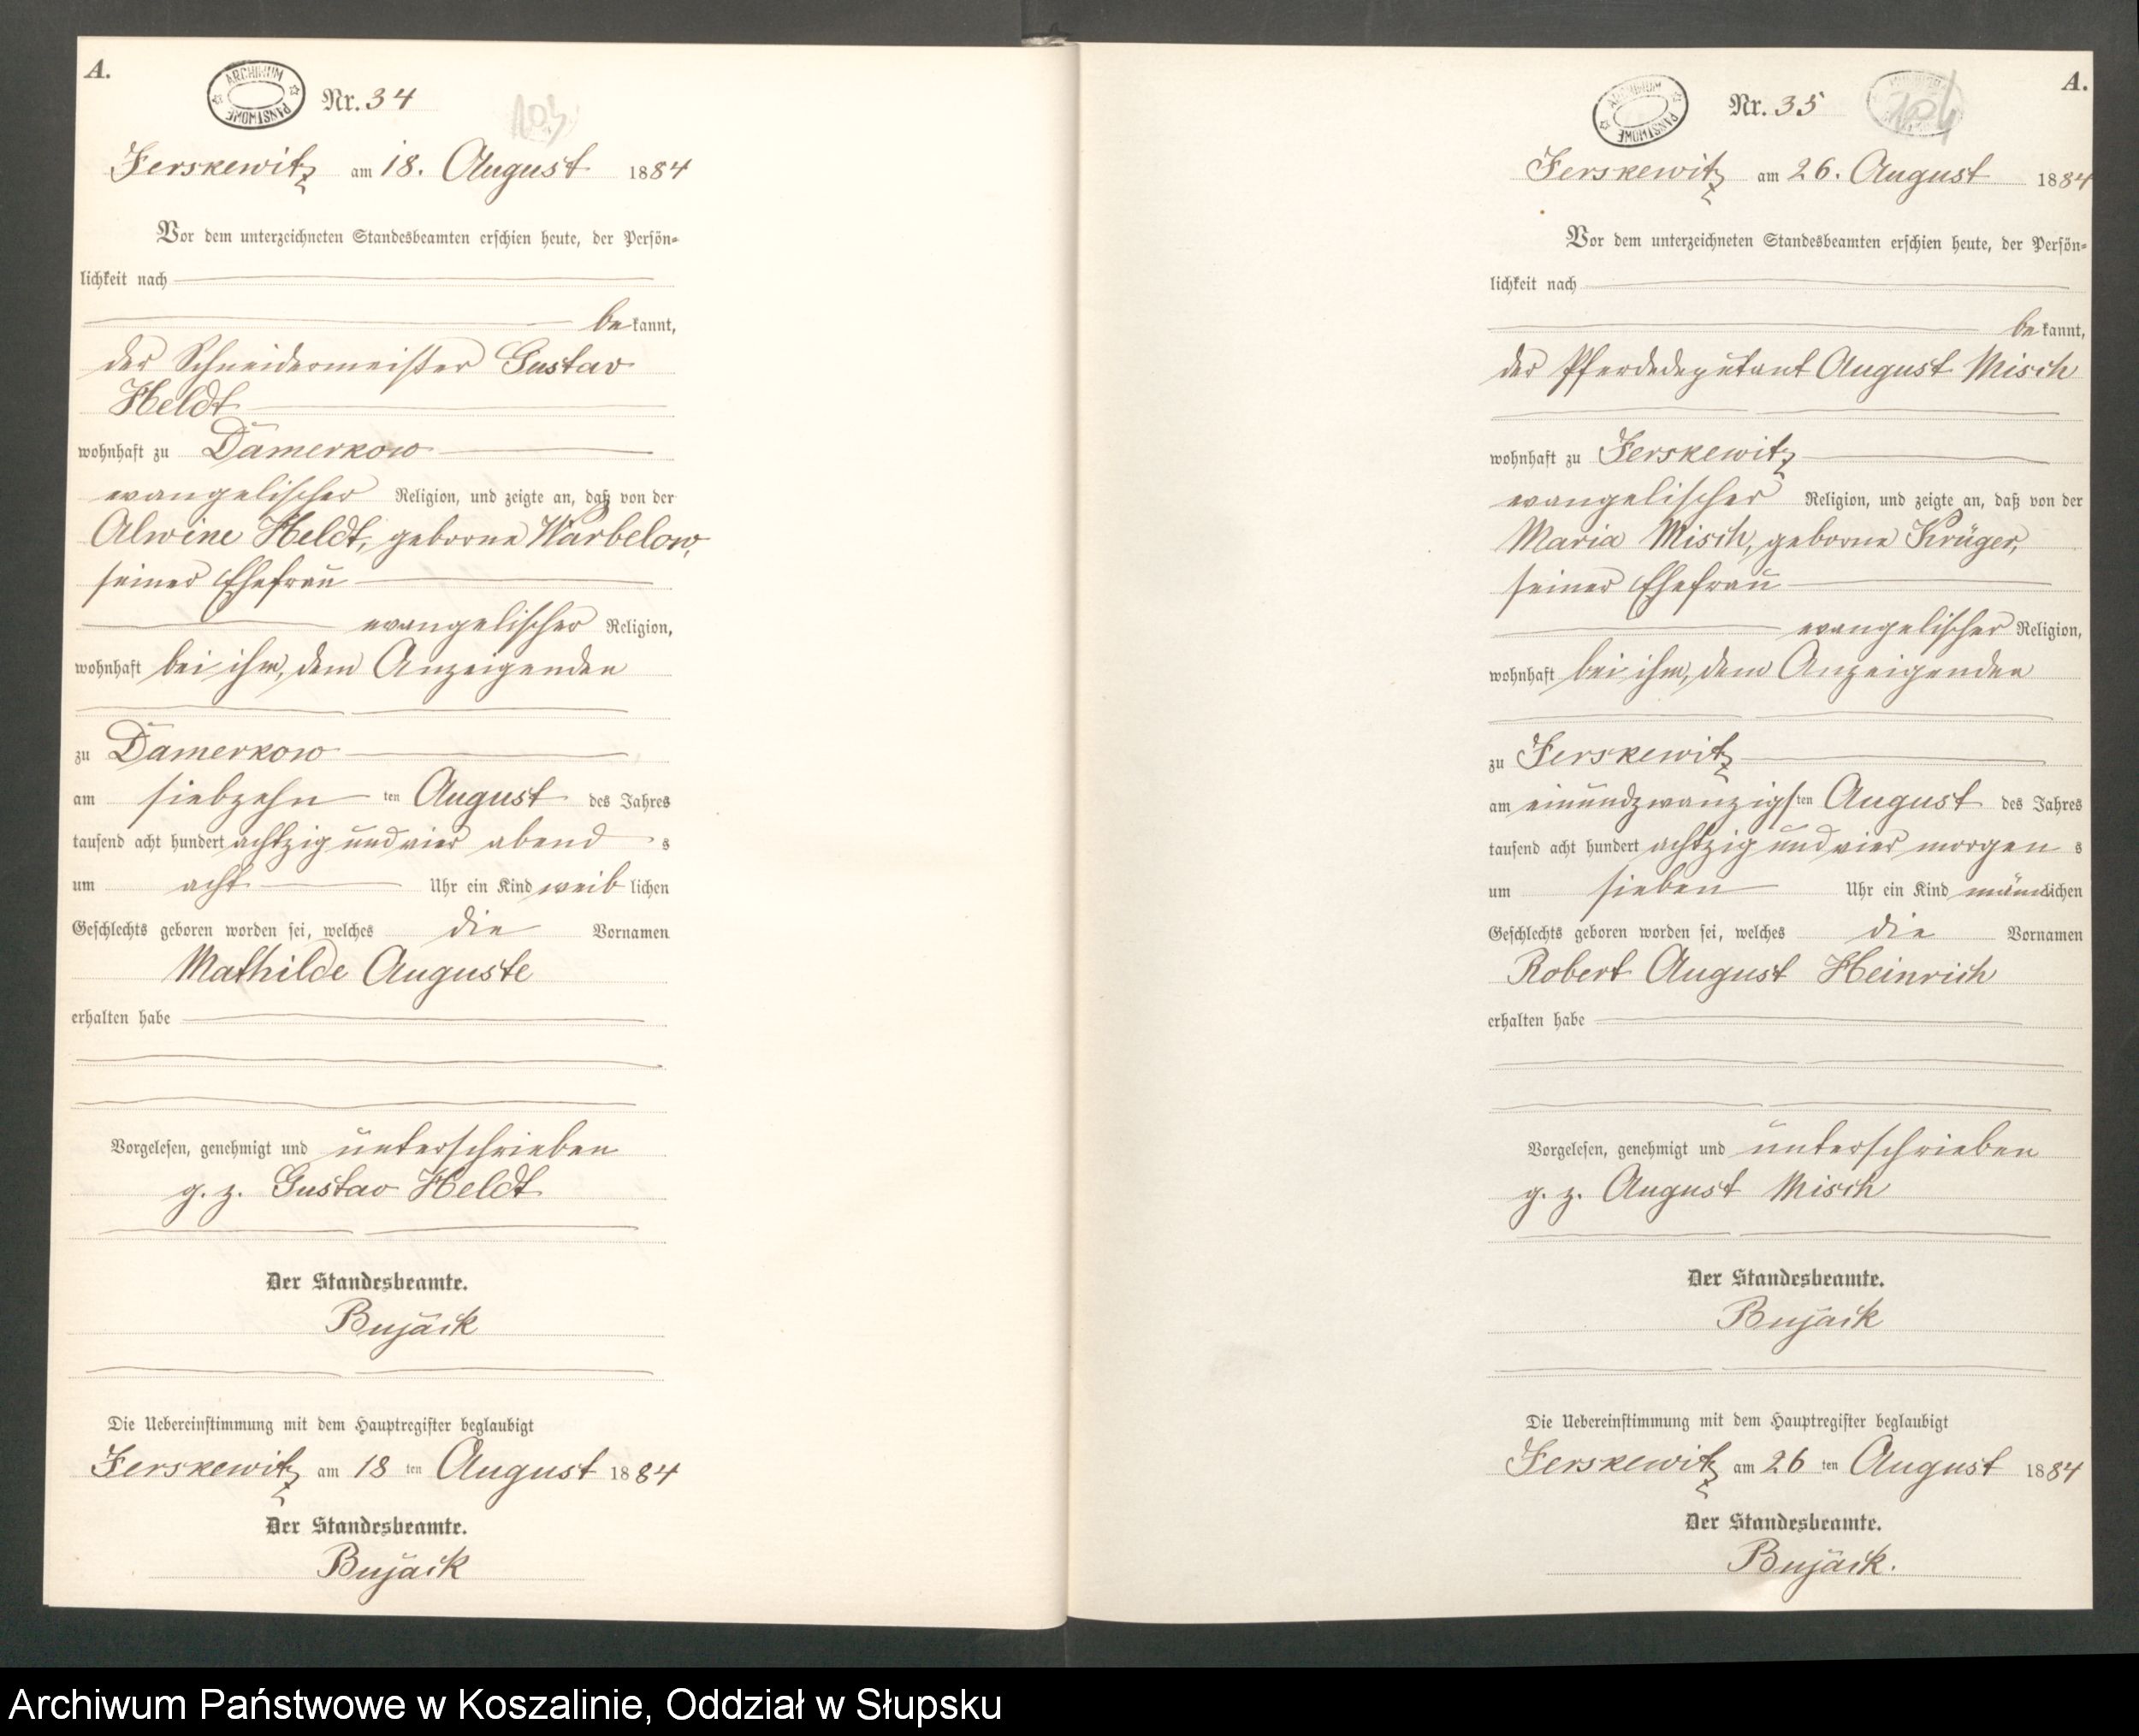 A.
ARCHIWUM PAŃSTWOWE
Nr. 34
103
Jerskewitz am 18. August 1884
Vor dem unterzeichneten Standesbeamten erschien heute, der Persön-
lichkeit nach
bekannt,
der Schneidermeister Gustav
Heldt
wohnhaft zu Damerkow
evangelischer Religion, und zeigte an, daß von der
Alwine Heldt, geborne Warbelow,
seiner Ehefrau
evangelischer Religion,
wohnhaft bei ihm, dem Anzeigenden
zu Damerkow
am siebzehn ten August des Jahres
tausend acht hundert achtzig und vier abend s
um acht Uhr ein Kind weib lichen
Geschlechts geboren worden sei, welches die Vornamen
Mathilde Auguste
erhalten habe
Vorgelesen, genehmigt und unterschrieben
g. z. Gustav Heldt
Der Standesbeamte.
Bujack
Die Uebereinstimmung mit dem Hauptregister beglaubigt
Jerskewitz am 18 ten August 1884
Der Standesbeamte.
Bujack
A.
ARCHIWUM PAŃSTWOWE
Nr. 35
104
Jerskewitz am 26. August 1884
Vor dem unterzeichneten Standesbeamten erschien heute, der Persön-
lichkeit nach
bekannt,
der Pferdedeputant August Misch
wohnhaft zu Jerskewitz
evangelischer Religion, und zeigte an, daß von der
Maria Misch, geborne Krüger,
seiner Ehefrau
evangelischer Religion,
wohnhaft bei ihm, dem Anzeigenden
zu Jerskewitz
am einundzwanzigsten August des Jahres
tausend acht hundert achtzig und vier morgen s
um sieben Uhr ein Kind männlichen
Geschlechts geboren worden sei, welches die Vornamen
Robert August Heinrich
erhalten habe
Vorgelesen, genehmigt und unterschrieben
g. z. August Misch
Der Standesbeamte.
Bujack
Die Uebereinstimmung mit dem Hauptregister beglaubigt
Jerskewitz am 26 ten August 1884
Der Standesbeamte.
Bujack.
Archiwum Państwowe w Koszalinie, Oddział w Słupsku